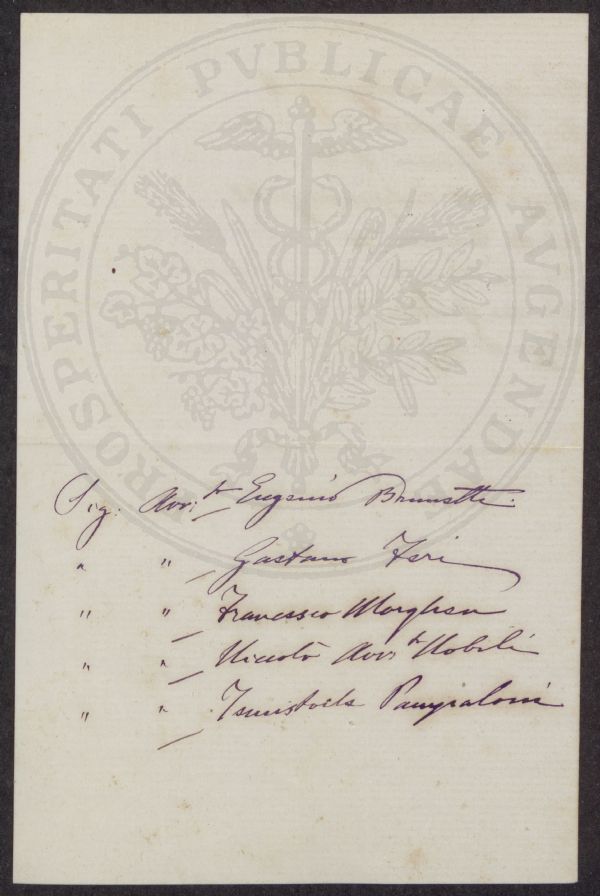 PROSPERITATI PVBLICAE AVGENDAE
Sig: Avv:to Eugenio Brunetti.
" " Gaetano
" " Francesco Morghen
" " Niccolò Avv:to Nobili
" " Pampaloni